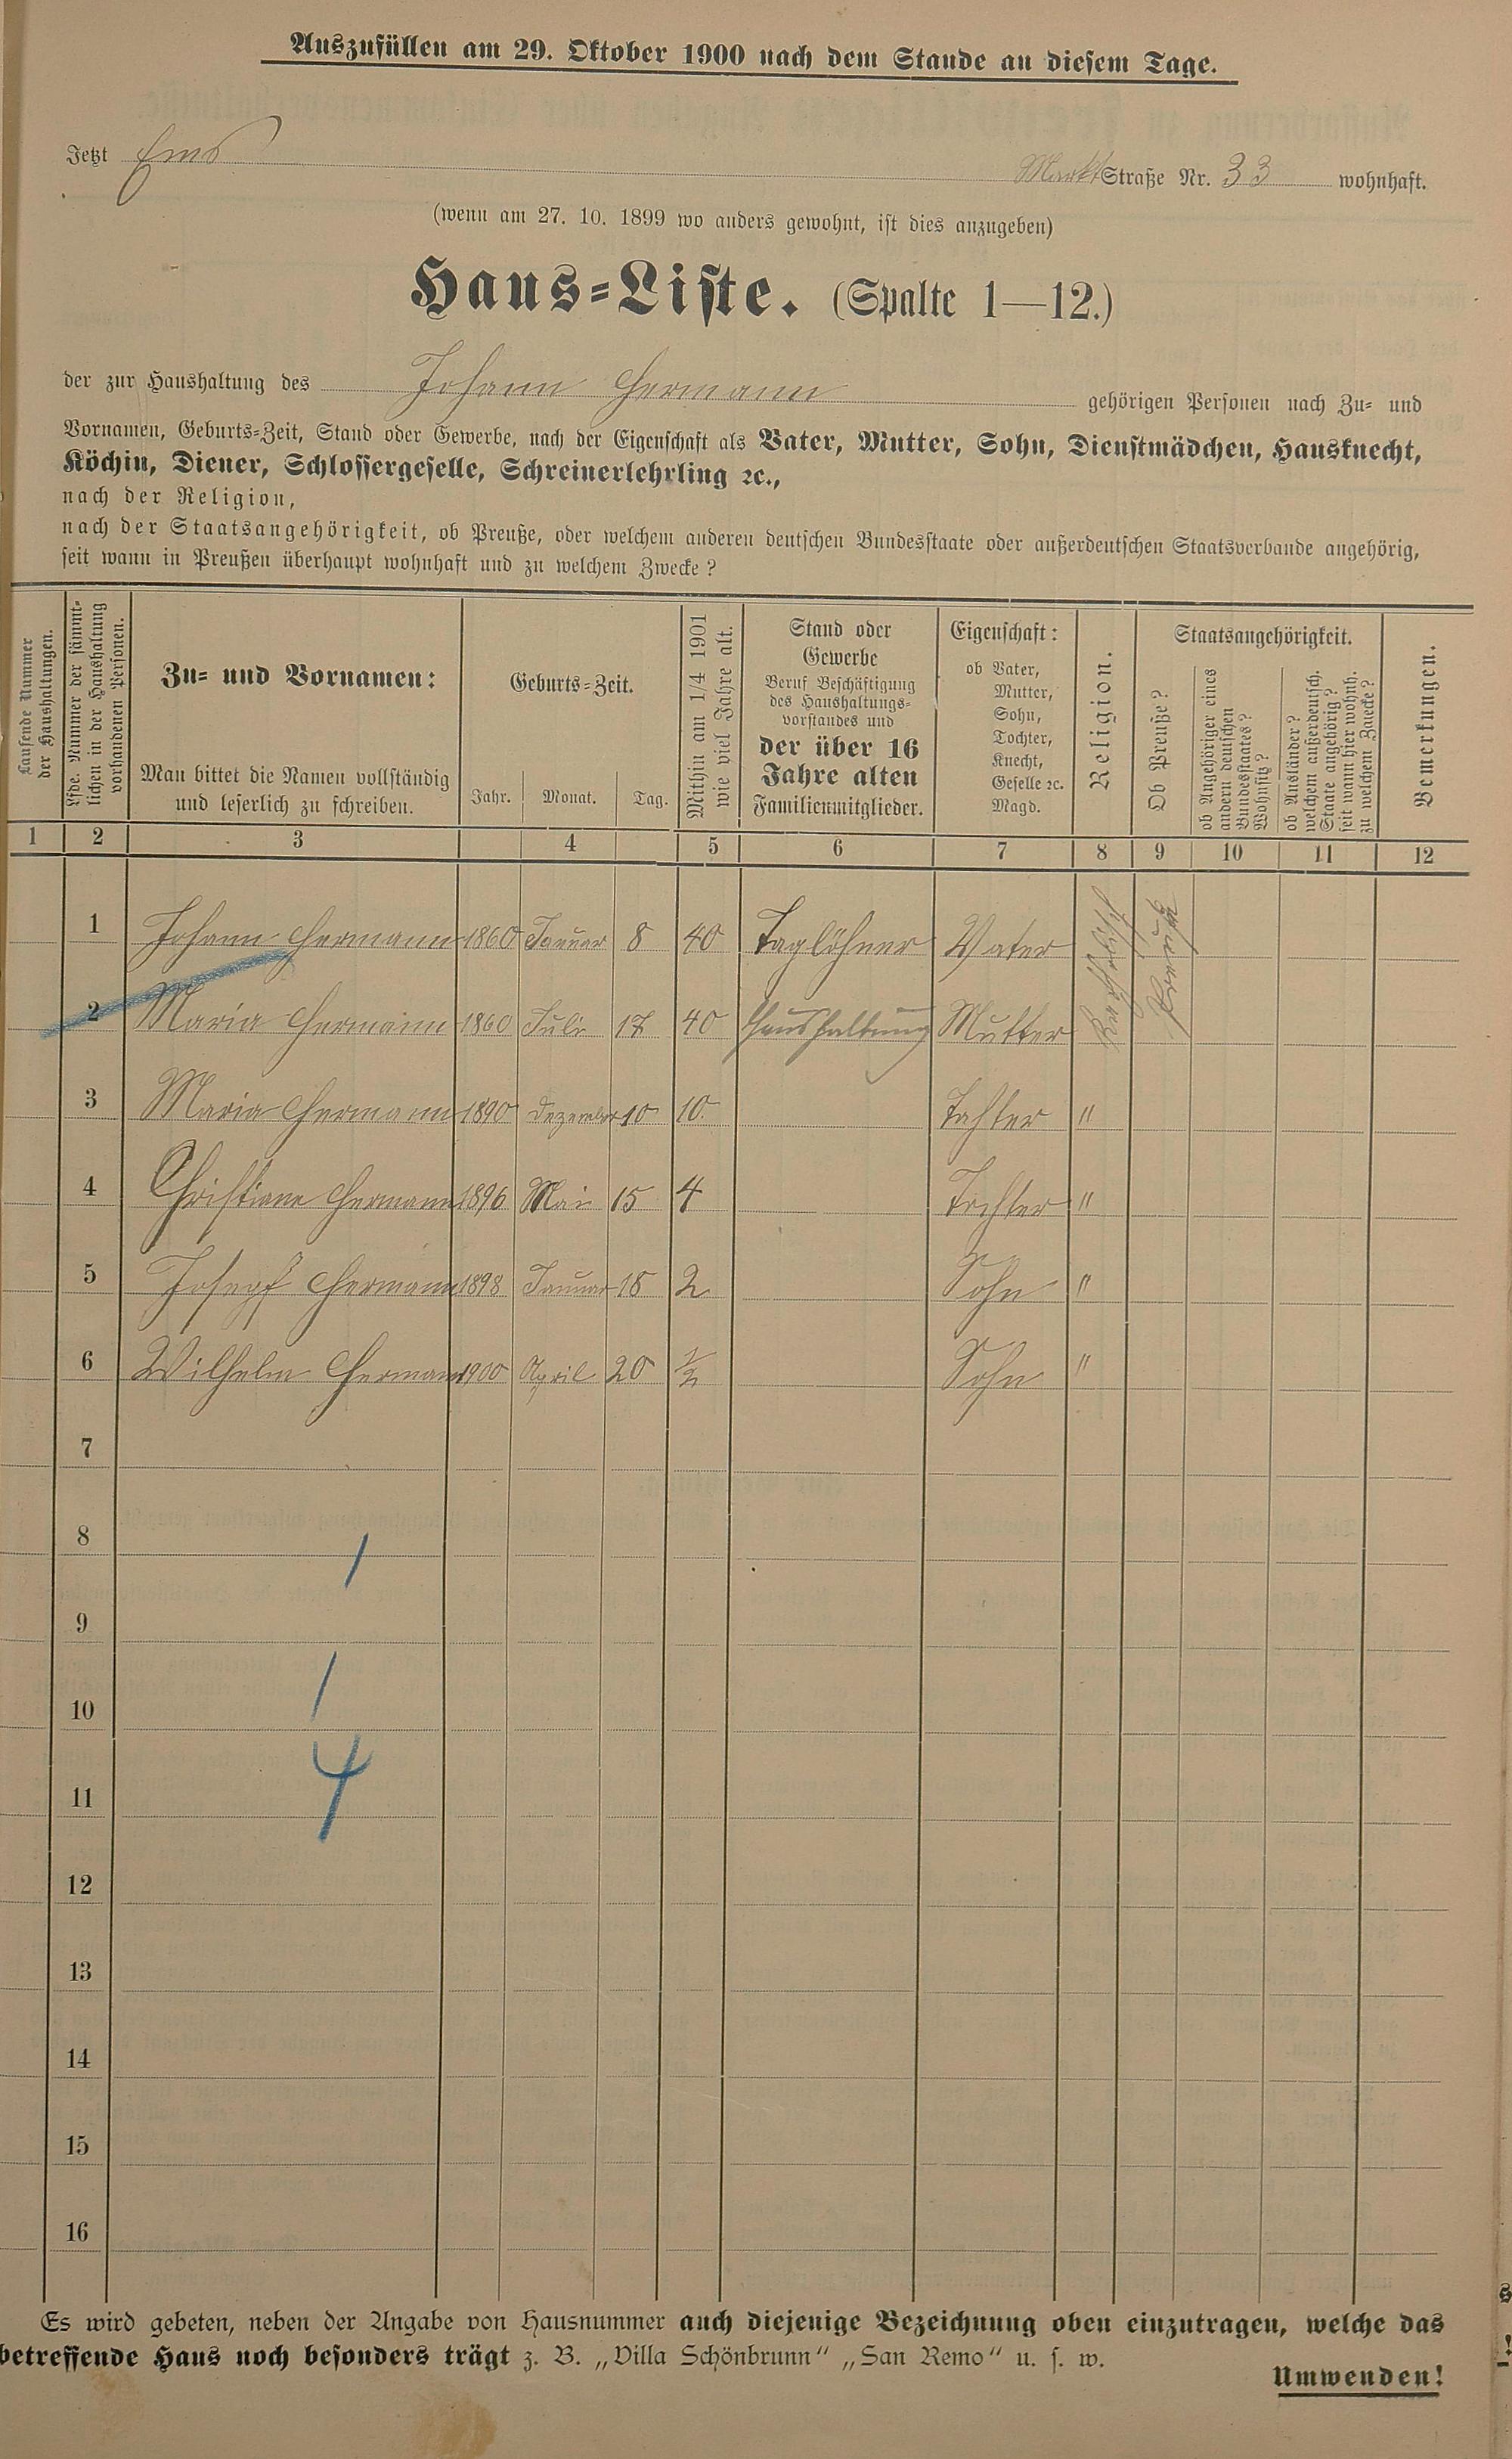 Auszufüllen am 29. Oktober 1900 nach dem Stande an diesem Tage.
Jetzt Ems Markt Straße Nr. 33 wohnhaft.
(wenn am 27. 10. 1899 wo anders gewohnt, ist dies anzugeben)
Haus-Liste. (Spalte 1—12.)
der zur Haushaltung des Johann Hermann gehörigen Personen nach Zu- und
Vornamen, Geburts-Zeit, Stand oder Gewerbe, nach der Eigenschaft als Vater, Mutter, Sohn, Dienstmädchen, Hausknecht,
Köchin, Diener, Schlossergeselle, Schreinerlehrling ꝛc.,
nach der Religion,
nach der Staatsangehörigkeit, ob Preuße, oder welchem anderen deutschen Bundesstaate oder außerdeutschen Staatsverbande angehörig,
seit wann in Preußen überhaupt wohnhaft und zu welchem Zwecke?
Laufende Nummer
der Haushaltungen.
Lfde. Nummer der sämmt-
lichen in der Haushaltung
vorhandenen Personen.
Zu- und Vornamen:
Man bittet die Namen vollständig
und leserlich zu schreiben.
Geburts-Zeit.
Jahr. Monat. Tag.
Mithin am 1/4 1901
wie viel Jahre alt.
Stand oder
Gewerbe
Beruf Beschäftigung
des Haushaltungs-
vorstandes und
der über 16
Jahre alten
Familienmitglieder.
Eigenschaft:
ob Vater,
Mutter,
Sohn,
Tochter,
Knecht,
Geselle ꝛc.
Magd.
Religion.
Staatsangehörigkeit.
Ob Preuße?
ob Angehöriger eines
andern deutschen
Bundesstaates?
Wohnsitz?
ob Ausländer?
welchem außerdeutsch.
Staate angehörig?
seit wann hier wohnh.
zu welchem Zwecke?
Bemerkungen.
1 2 3 4 5 6 7 8 9 10 11 12
1 Johann Hermann 1860 Januar 8 40 Taglöhner Vater Katholisch Preuße
2 Maria Hermann 1860 Juli 17 40 Haushaltung Mutter
3 Maria Hermann 1890 Dezember 10 10. Tahter "
4 Christiane Hermann 1896 Mai 15 4 Tochter "
5 Josepf Hermann 1898 Januar 18 2 Sohn "
6 Wilhelm Hermann 1900 April 20 1/2 Sohn "
7
8
1
9
1
10
4
11
12
13
14
15
16
Es wird gebeten, neben der Angabe von Hausnummer auch diejenige Bezeichnung oben einzutragen, welche das
betreffende Haus noch besonders trägt z. B. „Villa Schönbrunn“ „San Remo“ u. s. w.
Umwenden!